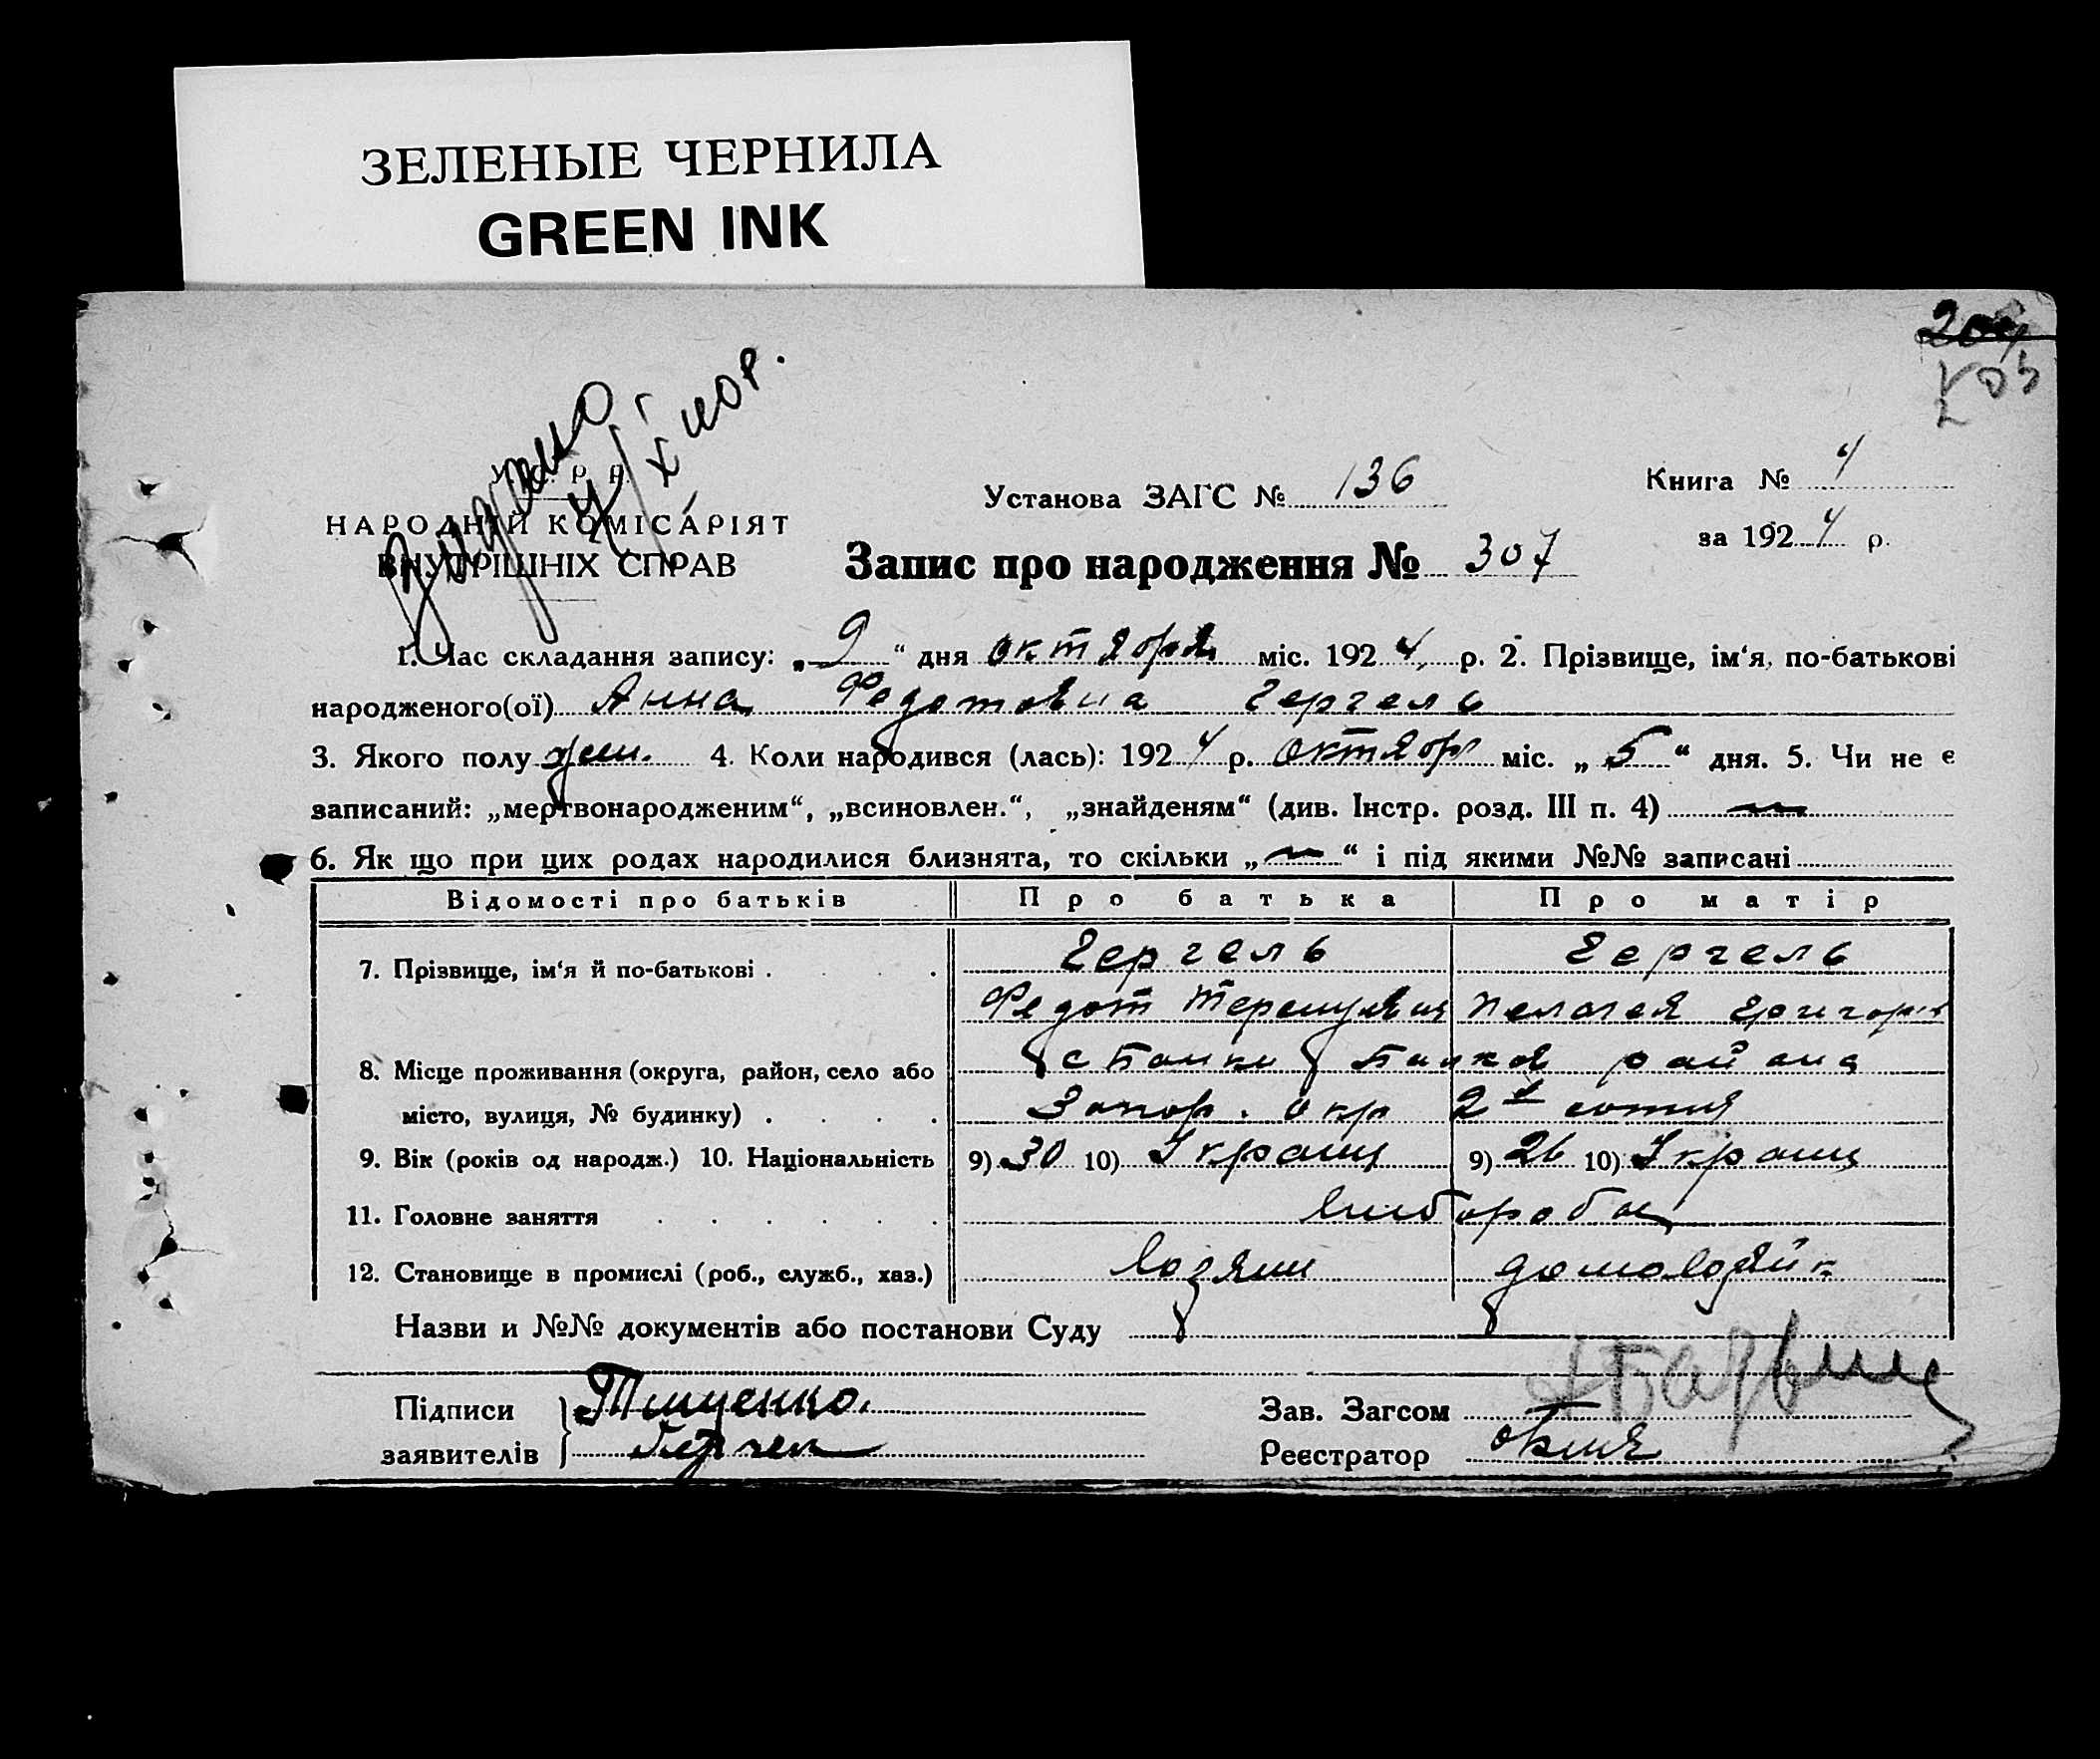 ЗЕЛЕНЫЕ ЧЕРНИЛА
GREEN INK
У. С. Р. Р.
НАРОДНІЙ КОМІСАРІЯТ
ВНУТРІШНІХ СПРАВ
Установа ЗАГС № 136
Книга № 4
за 1924 р.
Запис про народження № 307
1. Час складання запису: „9“ дня октября міс. 1924 р. 2. Прізвище, ім‘я, по-батькові
народженого(ої) Анна Федотовна Гергель
3. Якого полу жен. 4. Коли народився (лась): 1924 р. октябр міс. „5“ дня. 5. Чи не є
записаний: „мертвонародженим“, „всиновлен.“, „знайденям“ (див. Інстр. розд. III п. 4)
6. Як що при цих родах народилися близнята, то скільки „ “ і під якими №№ записані
Відомості про батьків Про батька Про матір
7. Прізвище, ім‘я й по-батькові . . . . Гергель Гергель
Федот Пелагея
8. Місце проживання (округа, район, село або с Балки района
місто, вулиця, № будинку) . . . . Запор. окр 2я сотня
9. Вік (років од народж.) 10. Національність 9) 30 10) Украин 9) 26 10) Украин
11. Головне заняття . . . . . . хлебороб
12. Становище в промислі (роб., служб., хаз.) Хозяин домохозяйк
Назви и №№ документів або постанови Суду
Підписи Тищенко.
заявителів
Зав. Загсом
Реєстратор